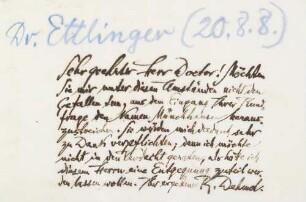 Dr. Ettlinger (20.8.8.)
Sehr geehrter Herr Doctor! Möchten
Sie mir unter diesen Umständen nicht den
Gefallen tun, aus dem Eingang Ihrer Rund-
frage den Namen Münchhausen heraus-
zustreichen. Sie würden mich dadurch sehr
zu Dank verpflichten, denn ich möchte
nicht in den Verdacht geraten, als hätte ich
diesem Herrn eine Entgegnung zuteil wer-
den lassen wollen. Ihr ergebener R. Dehmel.